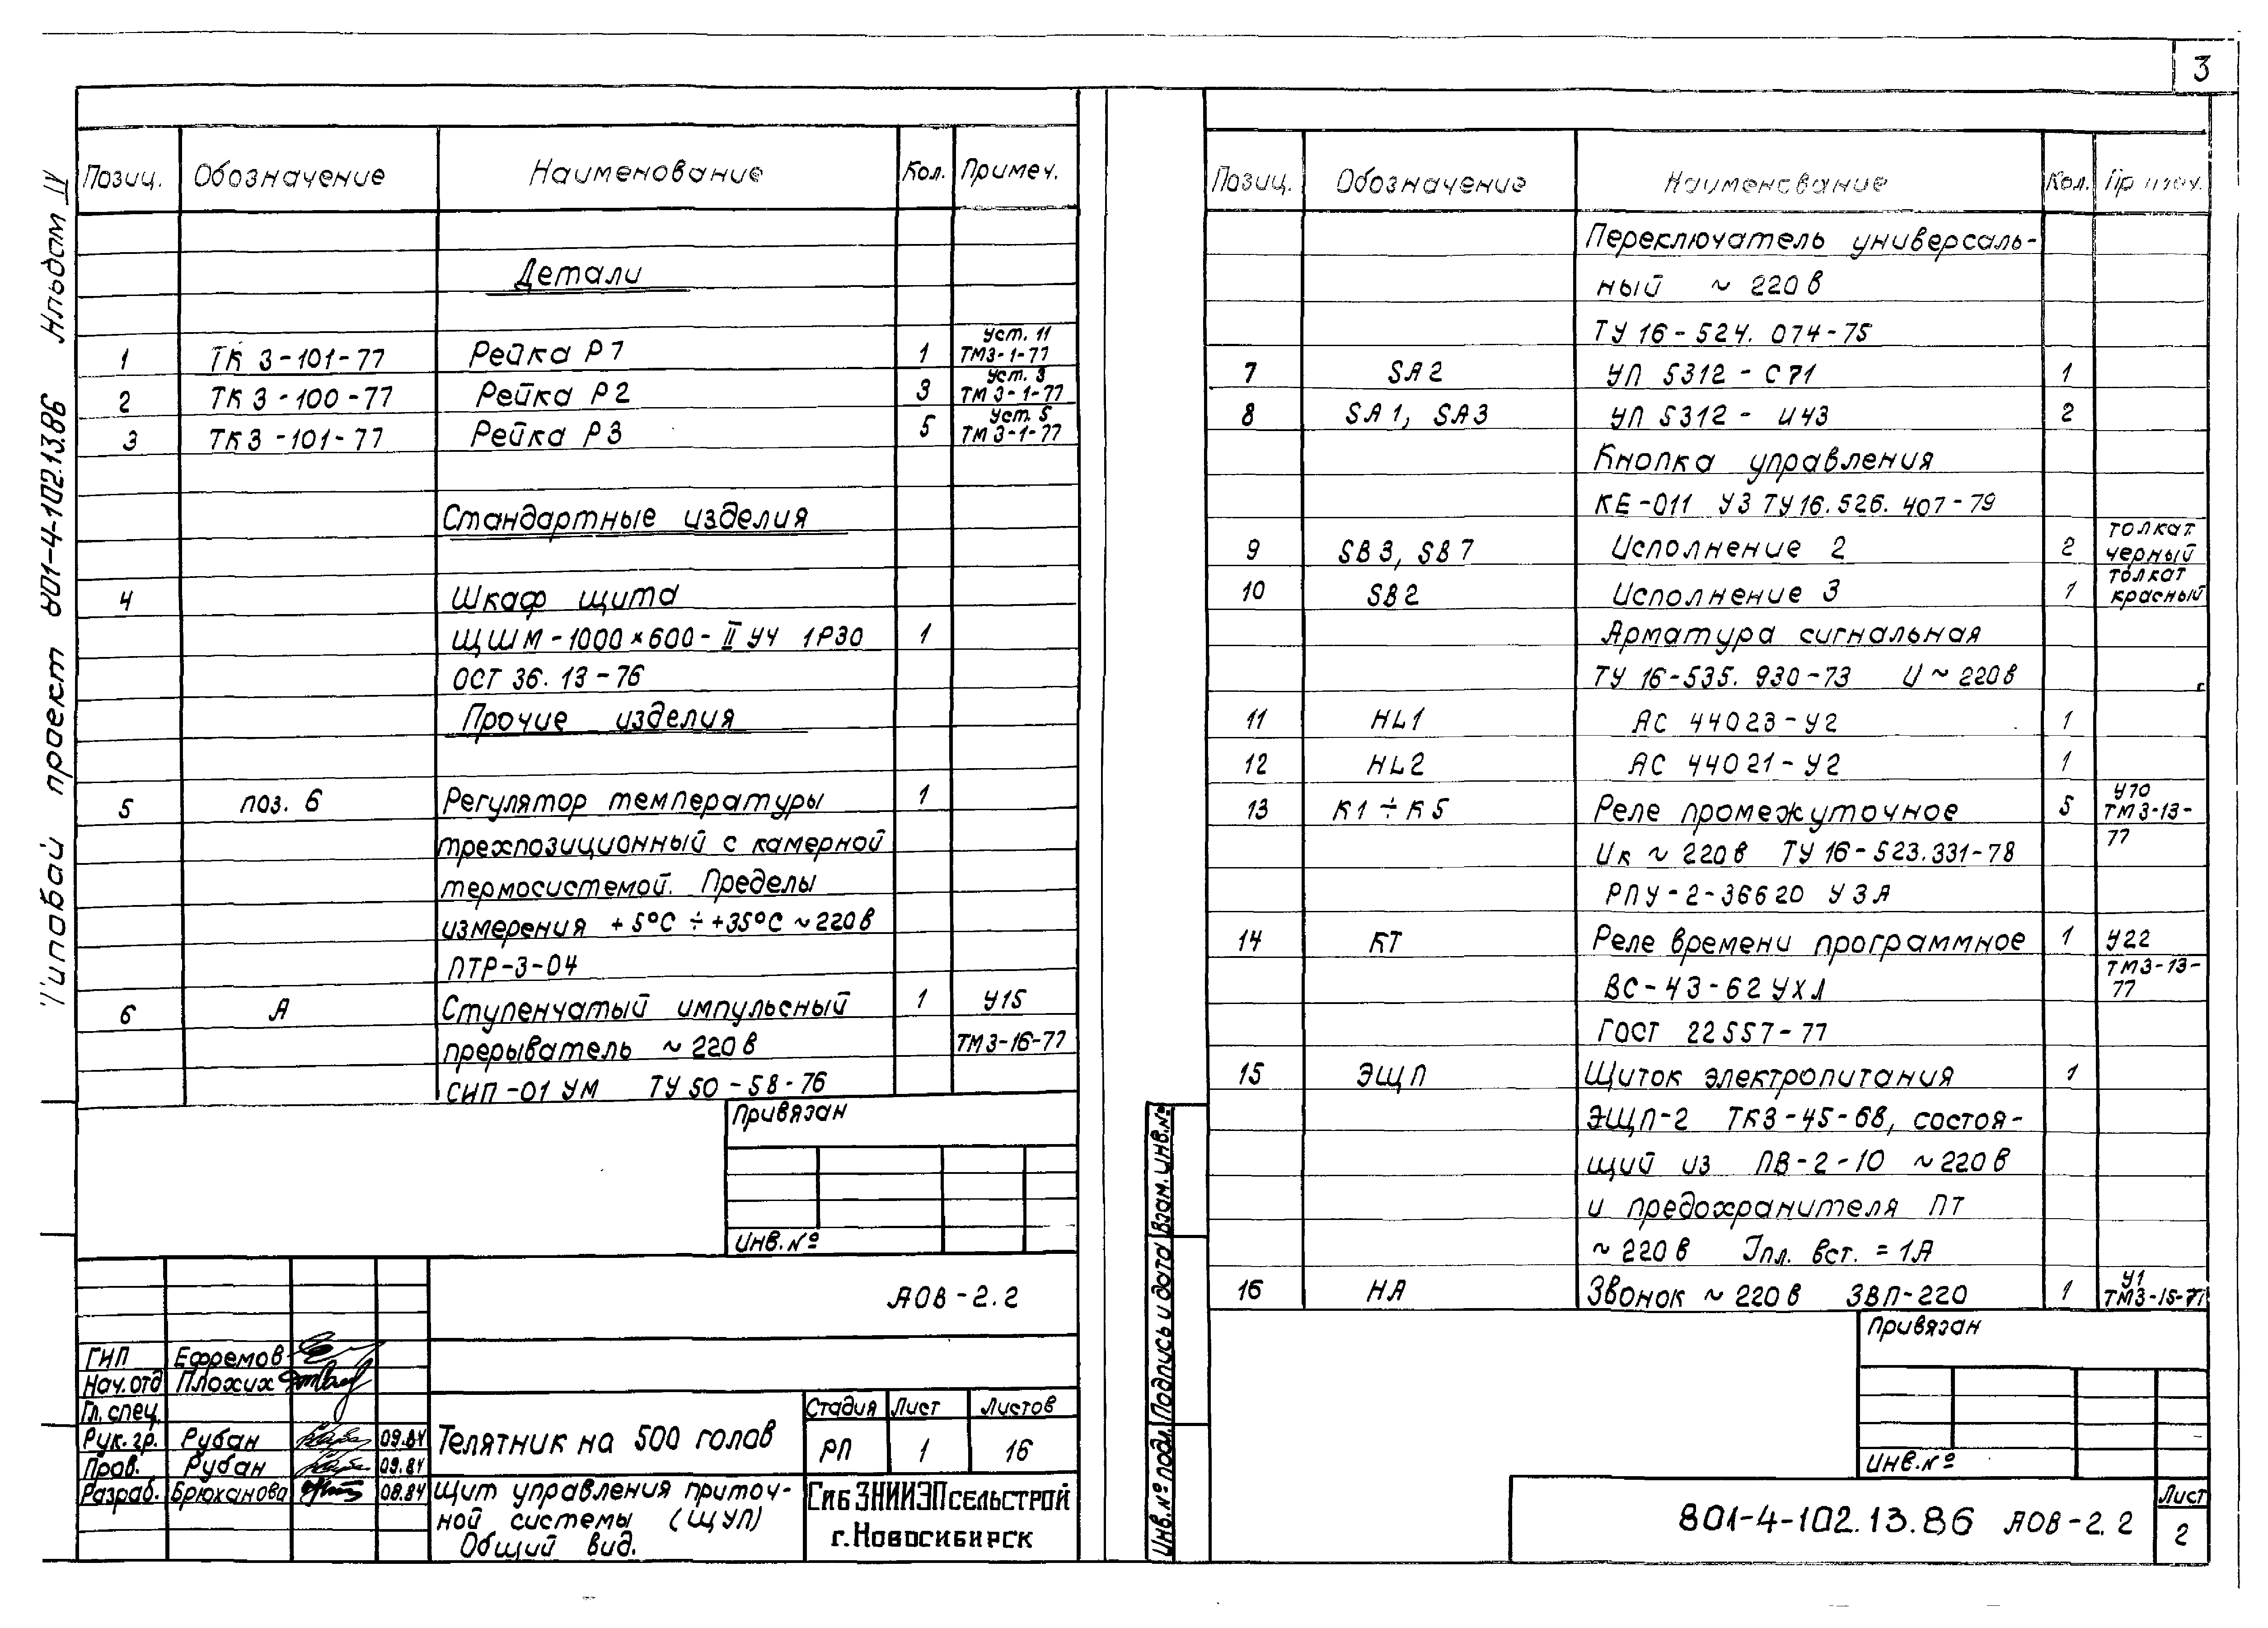 3
Типовой проект 801-4-102.13.86 Альбом IV
Позиц. Обозначение Наименование Кол. Примеч.
Детали
1 ТК 3-101-77 Рейка Р1 1 Уст. 11 ТМ3-1-77
2 ТК 3-100-77 Рейка Р2 3 Уст. 3 ТМ 3-1-77
3 ТК3-101-77 Рейка Р3 5 Уст. 5 ТМ 3-1-77
Стандартные изделия
4 Шкаф щита
ЩШМ-1000×600-II У4 1Р30 1
ОСТ 36.13-76
Прочие изделия
5 поз. 6 Регулятор температуры 1
трехпозиционный с камерной
термосистемой. Пределы
измерения +5°С ÷ +35°С ~220в
ПТР-3-04
6 А Ступенчатый импульсный 1 У15
прерыватель ~220в ТМ3-16-77
СИП-01 УМ ТУ50-58-76
Привязан
Инв.№
АОВ-2.2
ГИП Ефремов
Нач.отд Плохих
Гл. спец.
Рук. гр. Рубан 09.84
Пров. Рубан 09.84
Разраб. Брюханова 08.84
Телятник на 500 голов
Стадия Лист Листов
РП 1 16
Щит управления приточ-
ной системы (ЩУП)
Общий вид.
СибЗНИИЭПсельстрой
г.Новосибирск
Позиц. Обозначение Наименование Кол. Примеч.
Переключатель универсаль-
ный ~ 220в
ТУ 16-524.074-75
7 SA2 УП 5312-С71 1
8 SA1, SA3 УП 5312- И43 2
Кнопка управления
КЕ-011 У3 ТУ16.526.407-79
9 SB3, SB7 Исполнение 2 2 толкат. черный
10 SB2 Исполнение 3 1 толкат красный
Арматура сигнальная
ТУ 16-535.930-73 U ~ 220в
11 HL1 АС 44023-У2 1
12 HL2 АС 44021-У2 1
13 К1÷К5 Реле промежуточное 5 У70 ТМ3-13-
Uк ~ 220в ТУ 16-523.331-78 77
РПУ-2-36620 У3А
14 КТ Реле времени программное 1 У22
ВС-43-62 УХЛ ТМ3-13-77
ГОСТ 22557-77
15 ЭЩП Щиток электропитания 1
ЭЩП-2 ТК3-45-68, состоя-
щий из ПВ-2-10 ~220в
и предохранителя ПТ
~ 220в Iпл. вст. = 1А
16 НА Звонок ~ 220в ЗВП-220 1 У1 ТМ3-15-77
Привязан
Инв.№
Инв.№ подл. Подпись и дата Взам. инв.№
801-4-102.13.86 АОВ-2.2
Лист
2